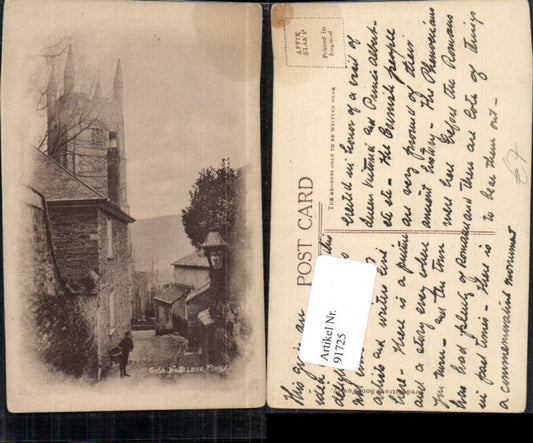 Lane, Fowey
AFFIX
STAMP
Printed in
England
THE ADDRESS ONLY TO BE WRITTEN HERE
POST CARD
This an
this
artists and writers live
here - there is a picture
and a story every where
you turn - and the town
has had plenty of Romance
in past times - there is
a commemorative monument
erected in honor of a visit of
Queen Victoria and Prince Albert -
etc etc - The Cornish people
are very proud of their
ancient history - The Phoenicians
were here before the Romans
and there are lots of things
to bear them out -
Artikel Nr.
91725